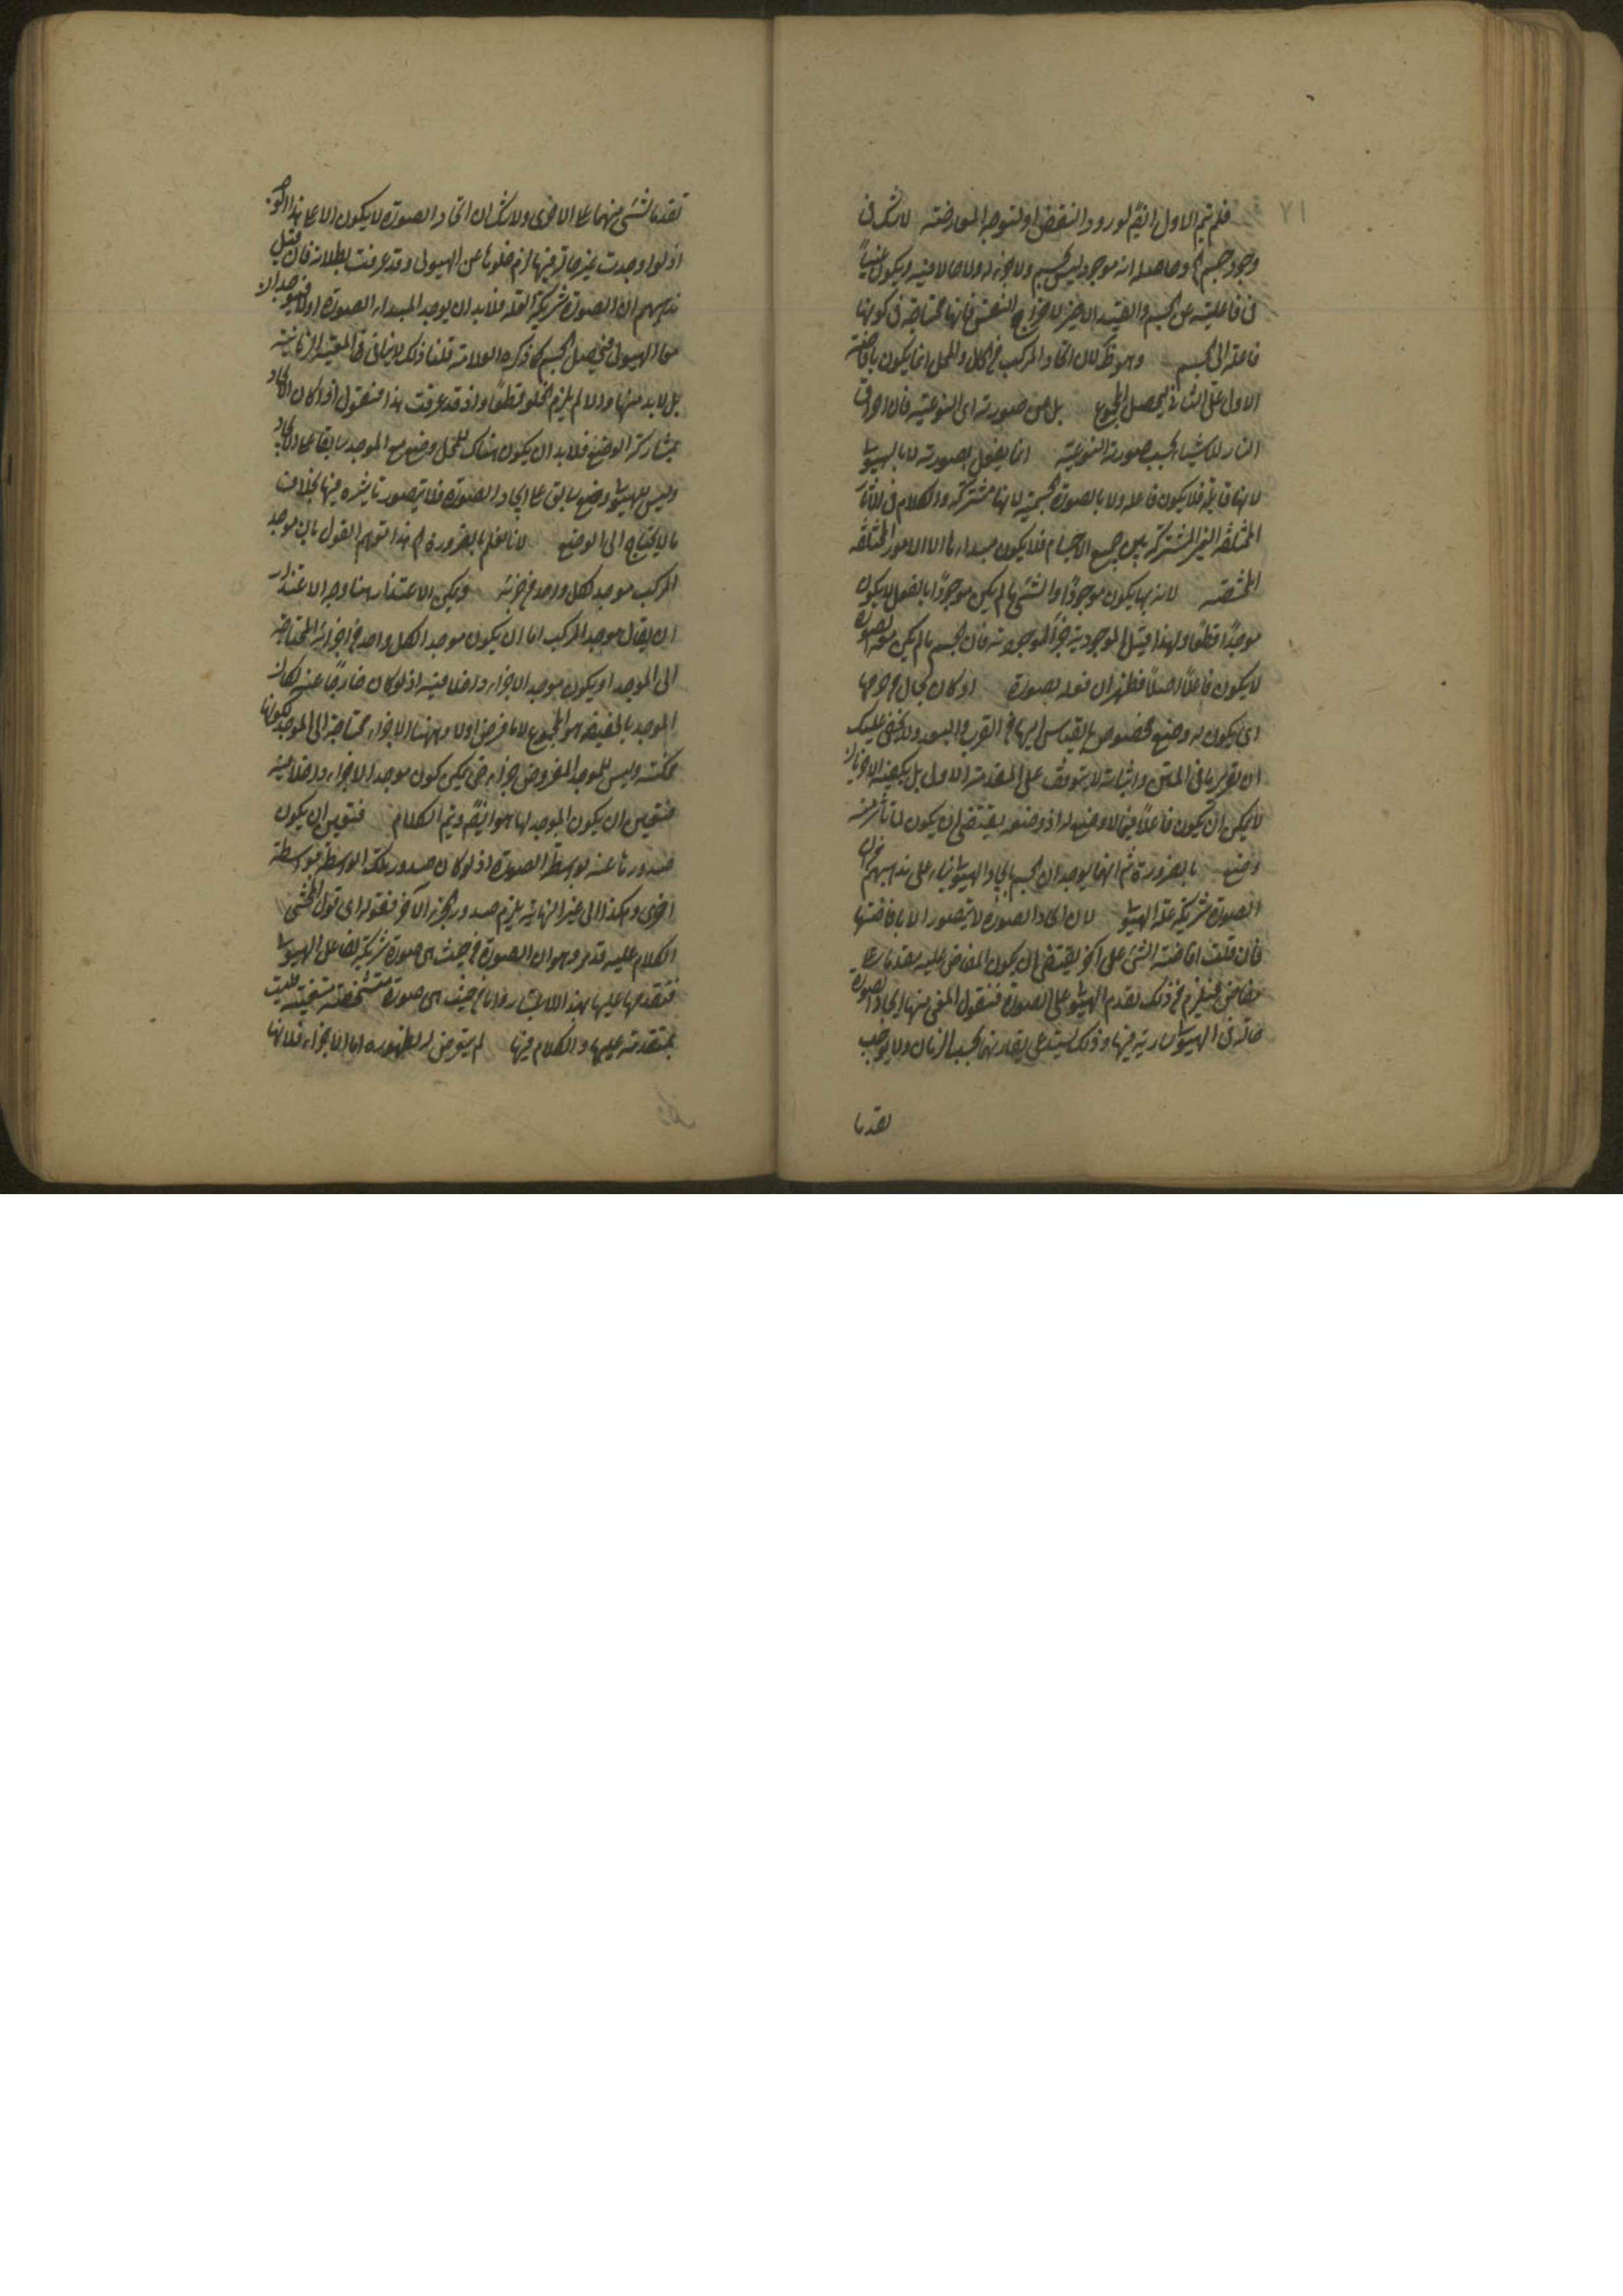 ٧١
فلم يتم الاول ايضً لورود النقض او لتوجه المعارضة لا شك فى
وجود جسم وحاصله انه موجود ليس بجسم ولا جزء له ولا حالا فيه ويكون غنياً
فى فاعليته عن الجسم والقيد الاخير لاخراج النفس فانها محتاجة فى كونها
فاعلة الى الجسم وهو ظ لان اتحاد المركب من الحال والمحل انما يكون بافاضة
الاول على الثانى ليحصل المجموع بل من صورته اى النوعية فان احراق
النار للاشياء بحسب صورته النوعية انما يفعل بصورته لا بالهيولى
لانها قابلة فلا يكون فاعلة ولا بالصورة الجسمية لانها مشتركة والكلام فى الآثار
المختلفة الغير المشتركة بين جميع الاجسام فلا يكون مبداءها الا الامور المختلفة
المختصة لانه بها يكون موجودًا والشئ ما لم يكن موجودًا بالفعل لا يكون
موجدًا قطعًا ولهذا قيل الموجدية فرع الموجودية فان الجسم ما لم يكن معه الصورة
لا يكون فاعلاً اصلاً فظهر ان فعله بصورته او كان بحال من حالها
اى يكون له وضع مخصوص بالقياس اليها من القرب والبعد ولا يخفى عليك
ان تقرير ما فى المتن واثباته لا يتوقف على المقدمة الاولى بل يكفيه الاخريان
لا يمكن ان يكون فاعلاً فيما لا وضع له اذ وضعه يقتضى ان يكون لما تأثر منه
وضع بالضرورة ثم انهما يوجد ان الجسم بايجاد الهيولى بناء على مذاهبهم من ان
الصورة شريكة علة الهيولى لان ايجاد الصورة لا يتصور الا بافاضتها
فان قلت افاضة الشئ على آخر يقتضى ان يكون المفاض عليه مقدما على
مفاض فيلزم من ذلك تقدم الهيولى على الصورة فنقول المعنى منها ايجاد الصورة
حالة فى الهيولى سارية فيها وذلك يستدعى تقارنهما بحسب الزمان ولا يوجب
تقدما
تقدما لشئ منهما على الاخرى ولا شك ان ايجاد الصورة لا يكون الا على هذا الوجه
اذ لو اوجدت غير حالة فيها لزم خلوها عن الهيولى وقد عرفت بطلانه فان قيل
مذهبهم ان الصورة شريكة العلة فلا بد ان يوجد المبداء الصورة اولا فيوجد الا
معا الهيولى فيحصل الجسم كما ذكره العلامة قلنا ذلك لا ينافى المعية الزمانية
بل لا بد منها والا لم يلزم الخلو قطعًا واذ قد عرفت هذا فنقول اذا كان الايجاد
بمشاركة الوضع فلا بد ان يكون هناك للمحل وضع مع الموجد سابقا على الايجاد
وليس للهيولى وضع سابق على ايجاد الصورة فلا يتصور تاثيره فيها بخلاف
ما لا يحتاج الى الوضع لانا نعلم بالضرورة هذا توهم القول بان موجد
المركب موجد لكل واحد من جزئيه ويمكن الاعتذار هنا وجه الاعتذار
ان يقال موجد المركب اما ان يكون موجد الكل واحد من اجزائه المحتاجة
الى الموجد او يكون موجد الاجزاء داخلا فيه اذ لو كان خارجًا عنه لكان
الموجد بالحقيقة هو المجموع لا ما فرض اولا وههنا الاجزاء محتاجة الى الموجد لكونها
ممكنة وليس للموجد المفروض اجزاء حتى يمكن كون موجد الاجزاء داخلا فيه
فتعين ان يكون الموجد لها هو ايضً وتم الكلام فتعين ان يكون
صدورها عنه بواسطة الصورة اذ لو كان صدور تلك الواسطة بواسطة
اخرى وهكذا الى غير النهاية يلزم صدور الجزء الآخر فقوله اى قول المحشى
الكلام عليه قد مر وهو ان الصورة من حيث هى صورة شريكة لفاعل الهيولى
فتقدمها عليها بهذا الاعتبار واما من حيث هى صورة متشخصة متعينة فليست
بمتقدمة عليها والكلام فيها لم يتعرض له لظهوره اما الاجزاء فلانها